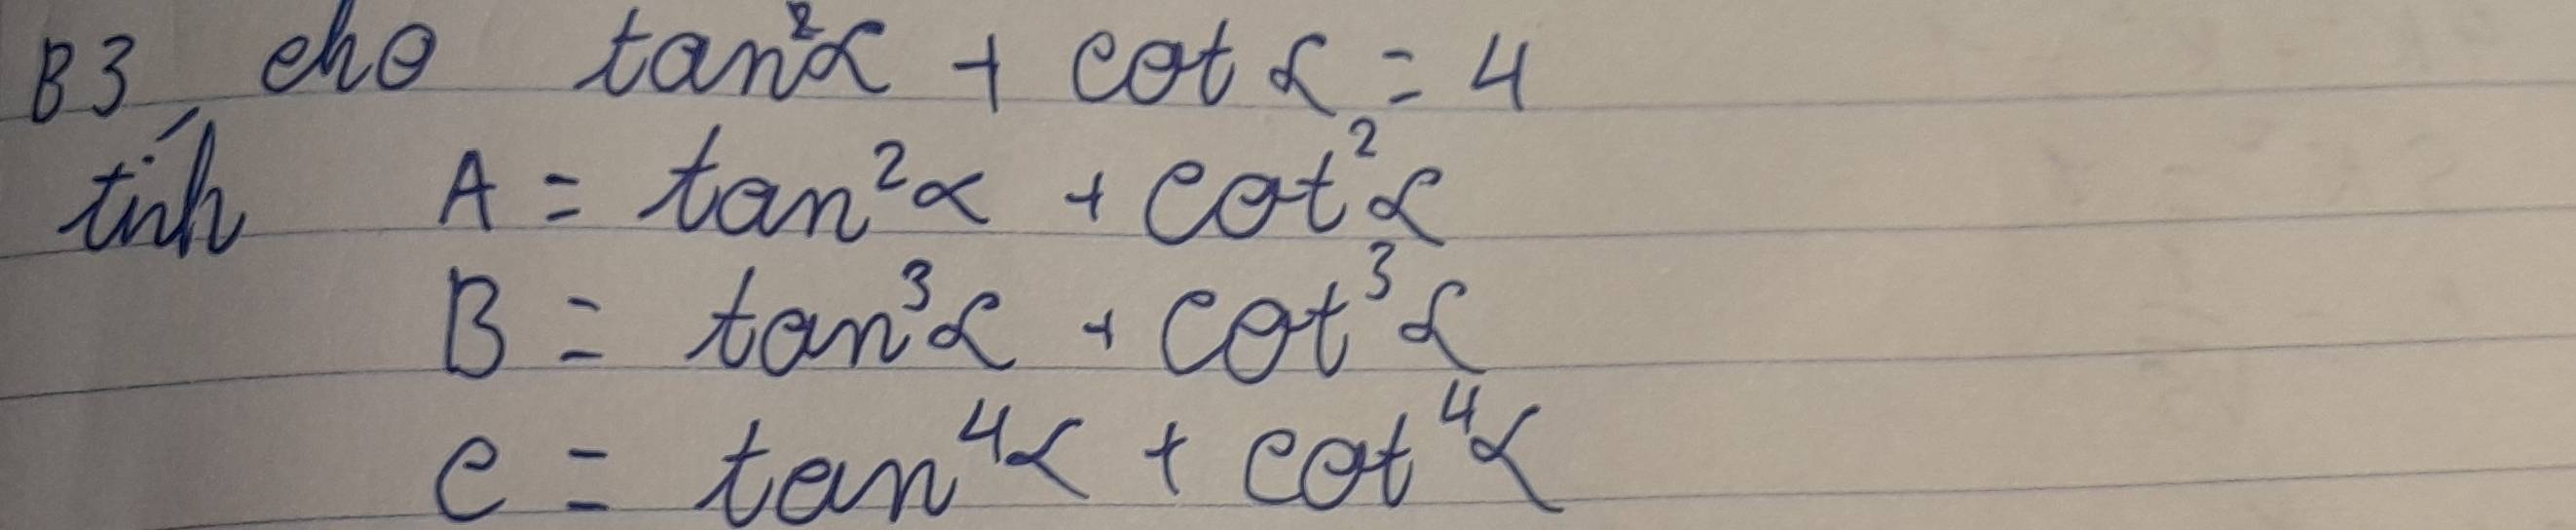 B3, cho tan²α + cot α = 4
tính A = tan²α + cot²α
B = tan³α + cot³α
C = tan⁴α + cot⁴α